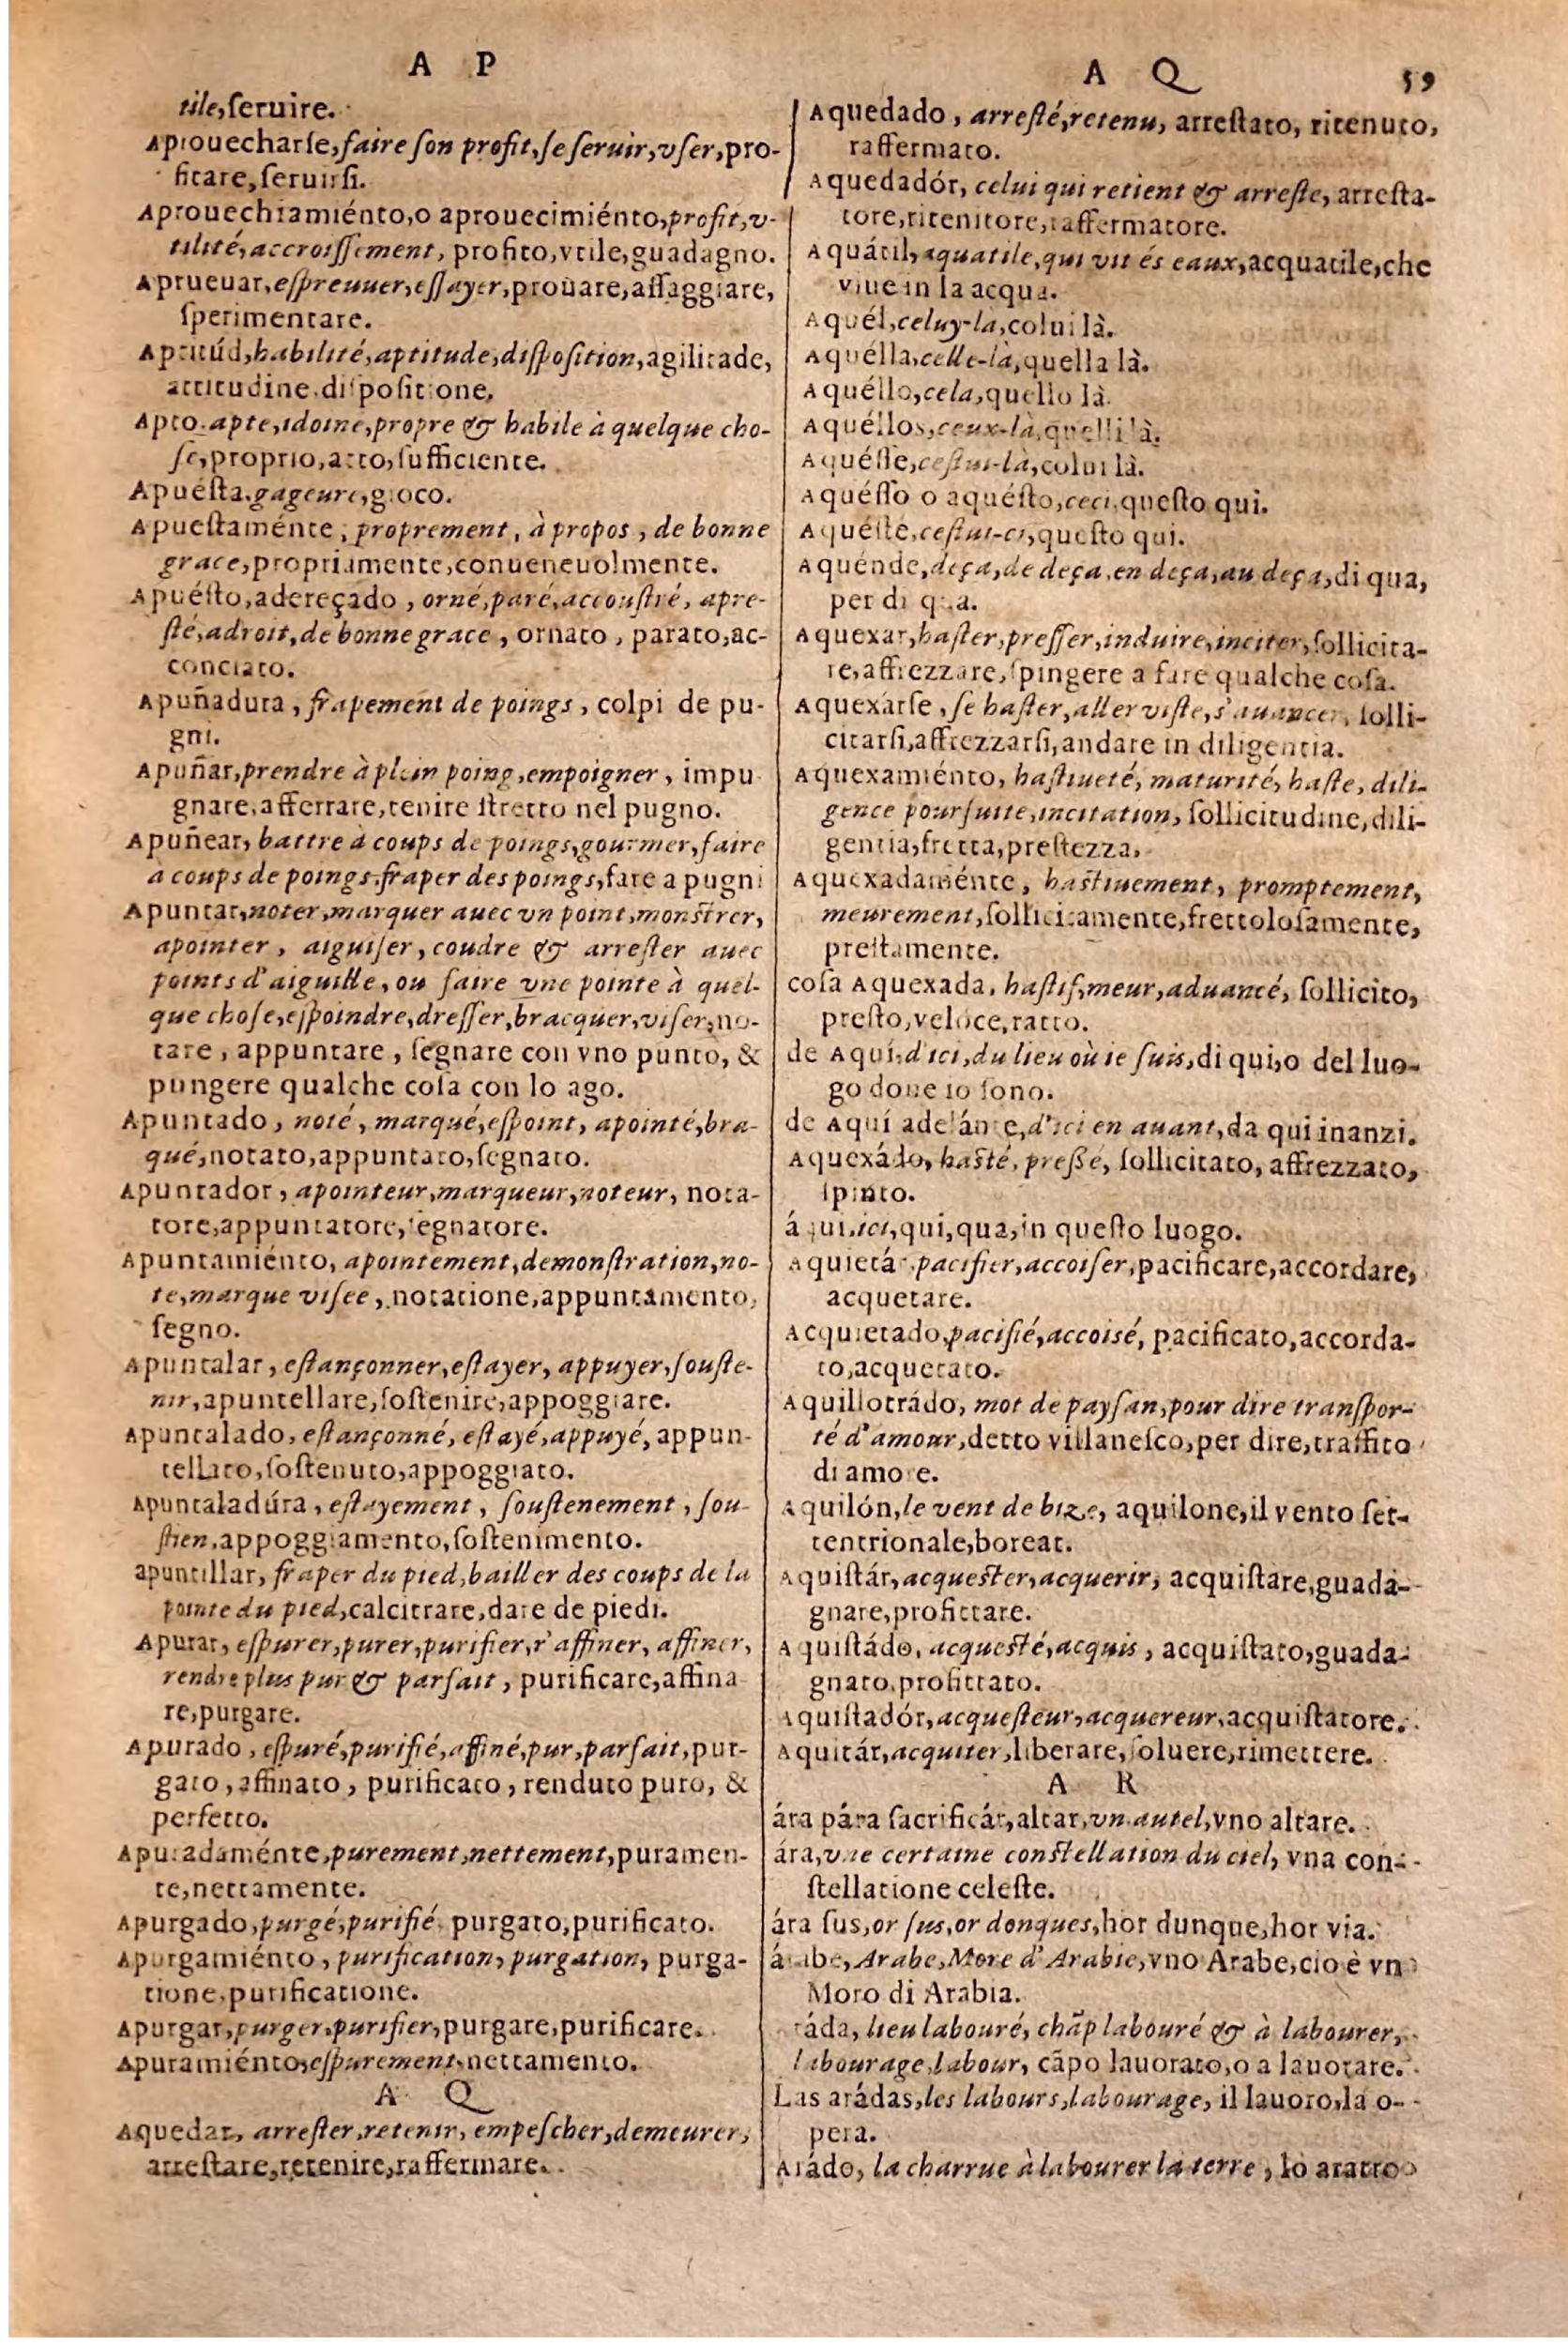 A P
tile, ſeruire.
Aprouecharſe, faire ſon profit, ſe ſeruir, vſer, pro-
fitare, ſeruirſi.
Aprouechiamiénto, o aprouecimiénto, profit, v-
tilité, accroiſſement, profito, vtile, guadagno.
Aprueuar, eſpreuuer, eſſayer, prouare, aſſaggiare,
ſperimentare.
Aptitúd, habilité, aptitude, diſpoſition, agilitade,
attitudine, diſpoſitione.
Apto, apte, idoine, propre & habile à quelque cho-
ſe, proprio, atto, ſufficiente.
Apuéſta, gageure, gioco.
Apueſtaménte, proprement, à propos, de bonne
grace, propriamente, conueneuolmente.
Apuéſto, adereçado, orné, paré, accouſtré, apre-
ſté, adroit, de bonne grace, ornato, parato, ac-
conciato.
Apuñadura, frapement de poings, colpi de pu-
gni.
Apuñar, prendre à plein poing, empoigner, impu
gnare, afferrare, tenire ſtretto nel pugno.
Apuñear, battre à coups de poings, gourmer, faire
a coups de poings, fraper des poings, fare a pugni
Apuntar, noter, marquer auec vn point, monſtrer,
apointer, aiguiſer, coudre & arreſter auec
points d'aiguille, ou faire vne pointe à quel-
que choſe, eſpoindre, dreſſer, bracquer, viſer, no-
tare, appuntare, ſegnare con vno punto, &
pungere qualche coſa con lo ago.
Apuntado, noté, marqué, eſpoint, apointé, bra-
qué, notato, appuntato, ſegnato.
Apuntador, apointeur, marqueur, noteur, nota-
tore, appuntatore, ſegnatore.
Apuntamiénto, apointement, demonſtration, no-
te, marque viſee, notatione, appuntamento,
ſegno.
Apuntalar, eſtançonner, eſtayer, appuyer, ſouſte-
nir, apuntellare, ſoſtenire, appoggiare.
Apuntalado, eſtançonné, eſtayé, appuyé, appun-
tellato, ſoſtenuto, appoggiato.
Apuntaladúra, eſtayement, ſouſtenement, ſou-
ſtien, appoggiamento, ſoſtenimento.
apuntillar, fraper du pied, bailler des coups de la
pointe du pied, calcitrare, dare de piedi.
Apurar, eſpurer, purer, purifier, r'affiner, affiner,
rendre plus pur & parfait, purificare, affina
re, purgare.
Apurado, eſpuré, purifié, affiné, pur, parfait, pur-
gato, affinato, purificato, renduto puro, &
perfetto.
Apuradaménte, purement, nettement, puramen-
te, nettamente.
Apurgado, purgé, purifié, purgato, purificato.
Apurgamiénto, purification, purgation, purga-
tione, purificatione.
Apurgar, purger, purifier, purgare, purificare.
Apuramiénto, eſpurement, nettamento.
A Q
Aquedar, arreſter, retenir, empeſcher, demeurer,
arreſtare, retenire, raffermare.
A Q 59
Aquedado, arreſté, retenu, arreſtato, ritenuto,
raffermato.
Aquedadór, celui qui retient & arreſte, arreſta-
tore, ritenitore, raffermatore.
Aquátil, aquatile, qui vit és eaux, acquatile, che
viue in la acqua.
Aquél, celuy-la, colui là.
Aquélla, celle-là, quella là.
Aquéllo, cela, quello là.
Aquéllos, ceux-là, quelli là.
Aquéſſe, ceſtui-là, colui là.
Aquéſſo o aquéſto, ceci, queſto qui.
Aquéſte, ceſtui-ci, queſto qui.
Aquénde, deça, de deça, en deça, au deça, di qua,
per di qua.
Aquexar, haſter, preſſer, induire, inciter, ſollicita-
re, affrezzare, ſpingere a fare qualche coſa.
Aquexárſe, ſe haſter, aller viſte, s'auancer, ſolli-
citarſi, affrezzarſi, andare in diligentia.
Aquexamiénto, haſtiueté, maturité, haſte, dili-
gence pourſuite, incitation, ſollicitudine, dili-
gentia, fretta, preſtezza.
Aquexadaménte, haſtiuement, promptement,
meurement, ſollicitamente, frettoloſamente,
preſtamente.
coſa Aquexada, haſtif, meur, aduancé, ſollicito,
preſto, veloce, ratto.
de Aquí, d'ici, du lieu où ie ſuis, di qui, o del luo-
go doue io ſono.
de Aquí adelánte, d'ici en auant, da qui inanzi.
Aquexádo, haſté, preſſé, ſollicitato, affrezzato,
ſpinto.
áqui, ici, qui, qua, in queſto luogo.
Aquietár, pacifier, accoiſer, pacificare, accordare,
acquetare.
Acquietado, pacifié, accoisé, pacificato, accorda-
to, acquetato.
Aquillotrádo, mot de payſan, pour dire tranſpor-
té d'amour, detto villaneſco, per dire, traffito
di amore.
Aquilón, le vent de bize, aquilone, il vento ſet-
tentrionale, boreat.
Aquiſtár, acqueſter, acquerir, acquiſtare, guada-
gnare, profittare.
Aquiſtádo, acqueſté, acquis, acquiſtato, guada-
gnato, profittato.
Aquiſtadór, acqueſteur, acquereur, acquiſtatore.
Aquitár, acquiter, liberare, ſoluere, rimettere.
A R
ára pára ſacrificár, altar, vn autel, vno altare.
ára, vne certaine conſtellation du ciel, vna con-
ſtellatione celeſte.
ára ſus, or ſus, or donques, hor dunque, hor via.
árabe, Arabe, More d'Arabie, vno Arabe, cio è vn
Moro di Arabia.
ráda, lieu labouré, chãp labouré & à labourer,
labourage, labour, cãpo lauorato, o a lauorare.
Las arádas, les labours, labourage, il lauoro, la o-
pera.
Arádo, la charrue à labourer la terre, lo aratro